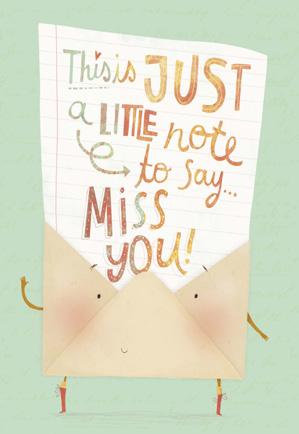 This is JUST
a LITTLE note
to say...
MISS
YOU!